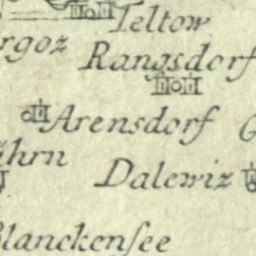 Teltow
rgoz Rangsdorf
Arensdorf
ührn
Dalewiz
Blanckensee